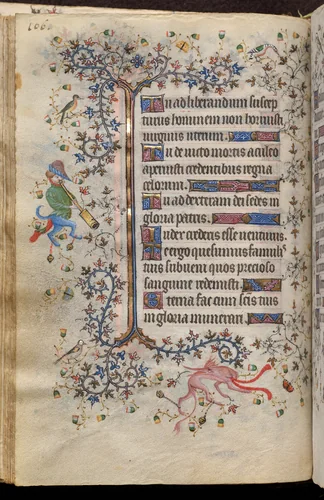 Tu ad liberandum suscep
turus hominem non horruisti
uirginis uterum.
Tu deuicto mortis aculeo
aperuisti credentibus regna
celorum.
Tu ad dexteram dei sedes in
gloria patris.
Iudex crederis esse uenturus.
Te ergo quesumus famulis
tuis subueni quos precioso
sanguine redemisti.
Eterna fac cum sctis tuis
in gloria munerari.